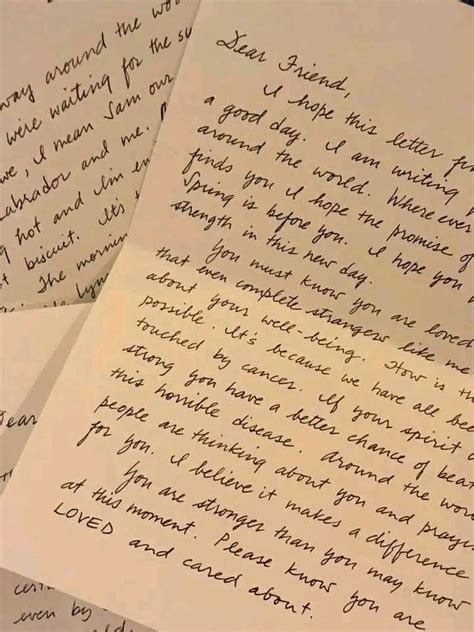 way around the wo
were waiting for the su
we, I mean Sam our
abrador and me.
g hot and I'm en
t biscuit. It's
The mornin
Dear Friend,
I hope this letter fi
a good day. I am writing
around the world. Where ever
finds you I hope the promise of
Spring is before you. I hope you
strength in this new day.
You must know you are loved
that even complete strangers like me
about your well-being. How is th
possible. It's because we have all bee
touched by cancer. If your spirit
strong you have a better chance of beat
this horrible disease. Around the wor
people are thinking about you and prayi
for you. I believe it makes a difference
You are stronger than you may know
at this moment. Please know you are
LOVED and cared about.
ear
even by